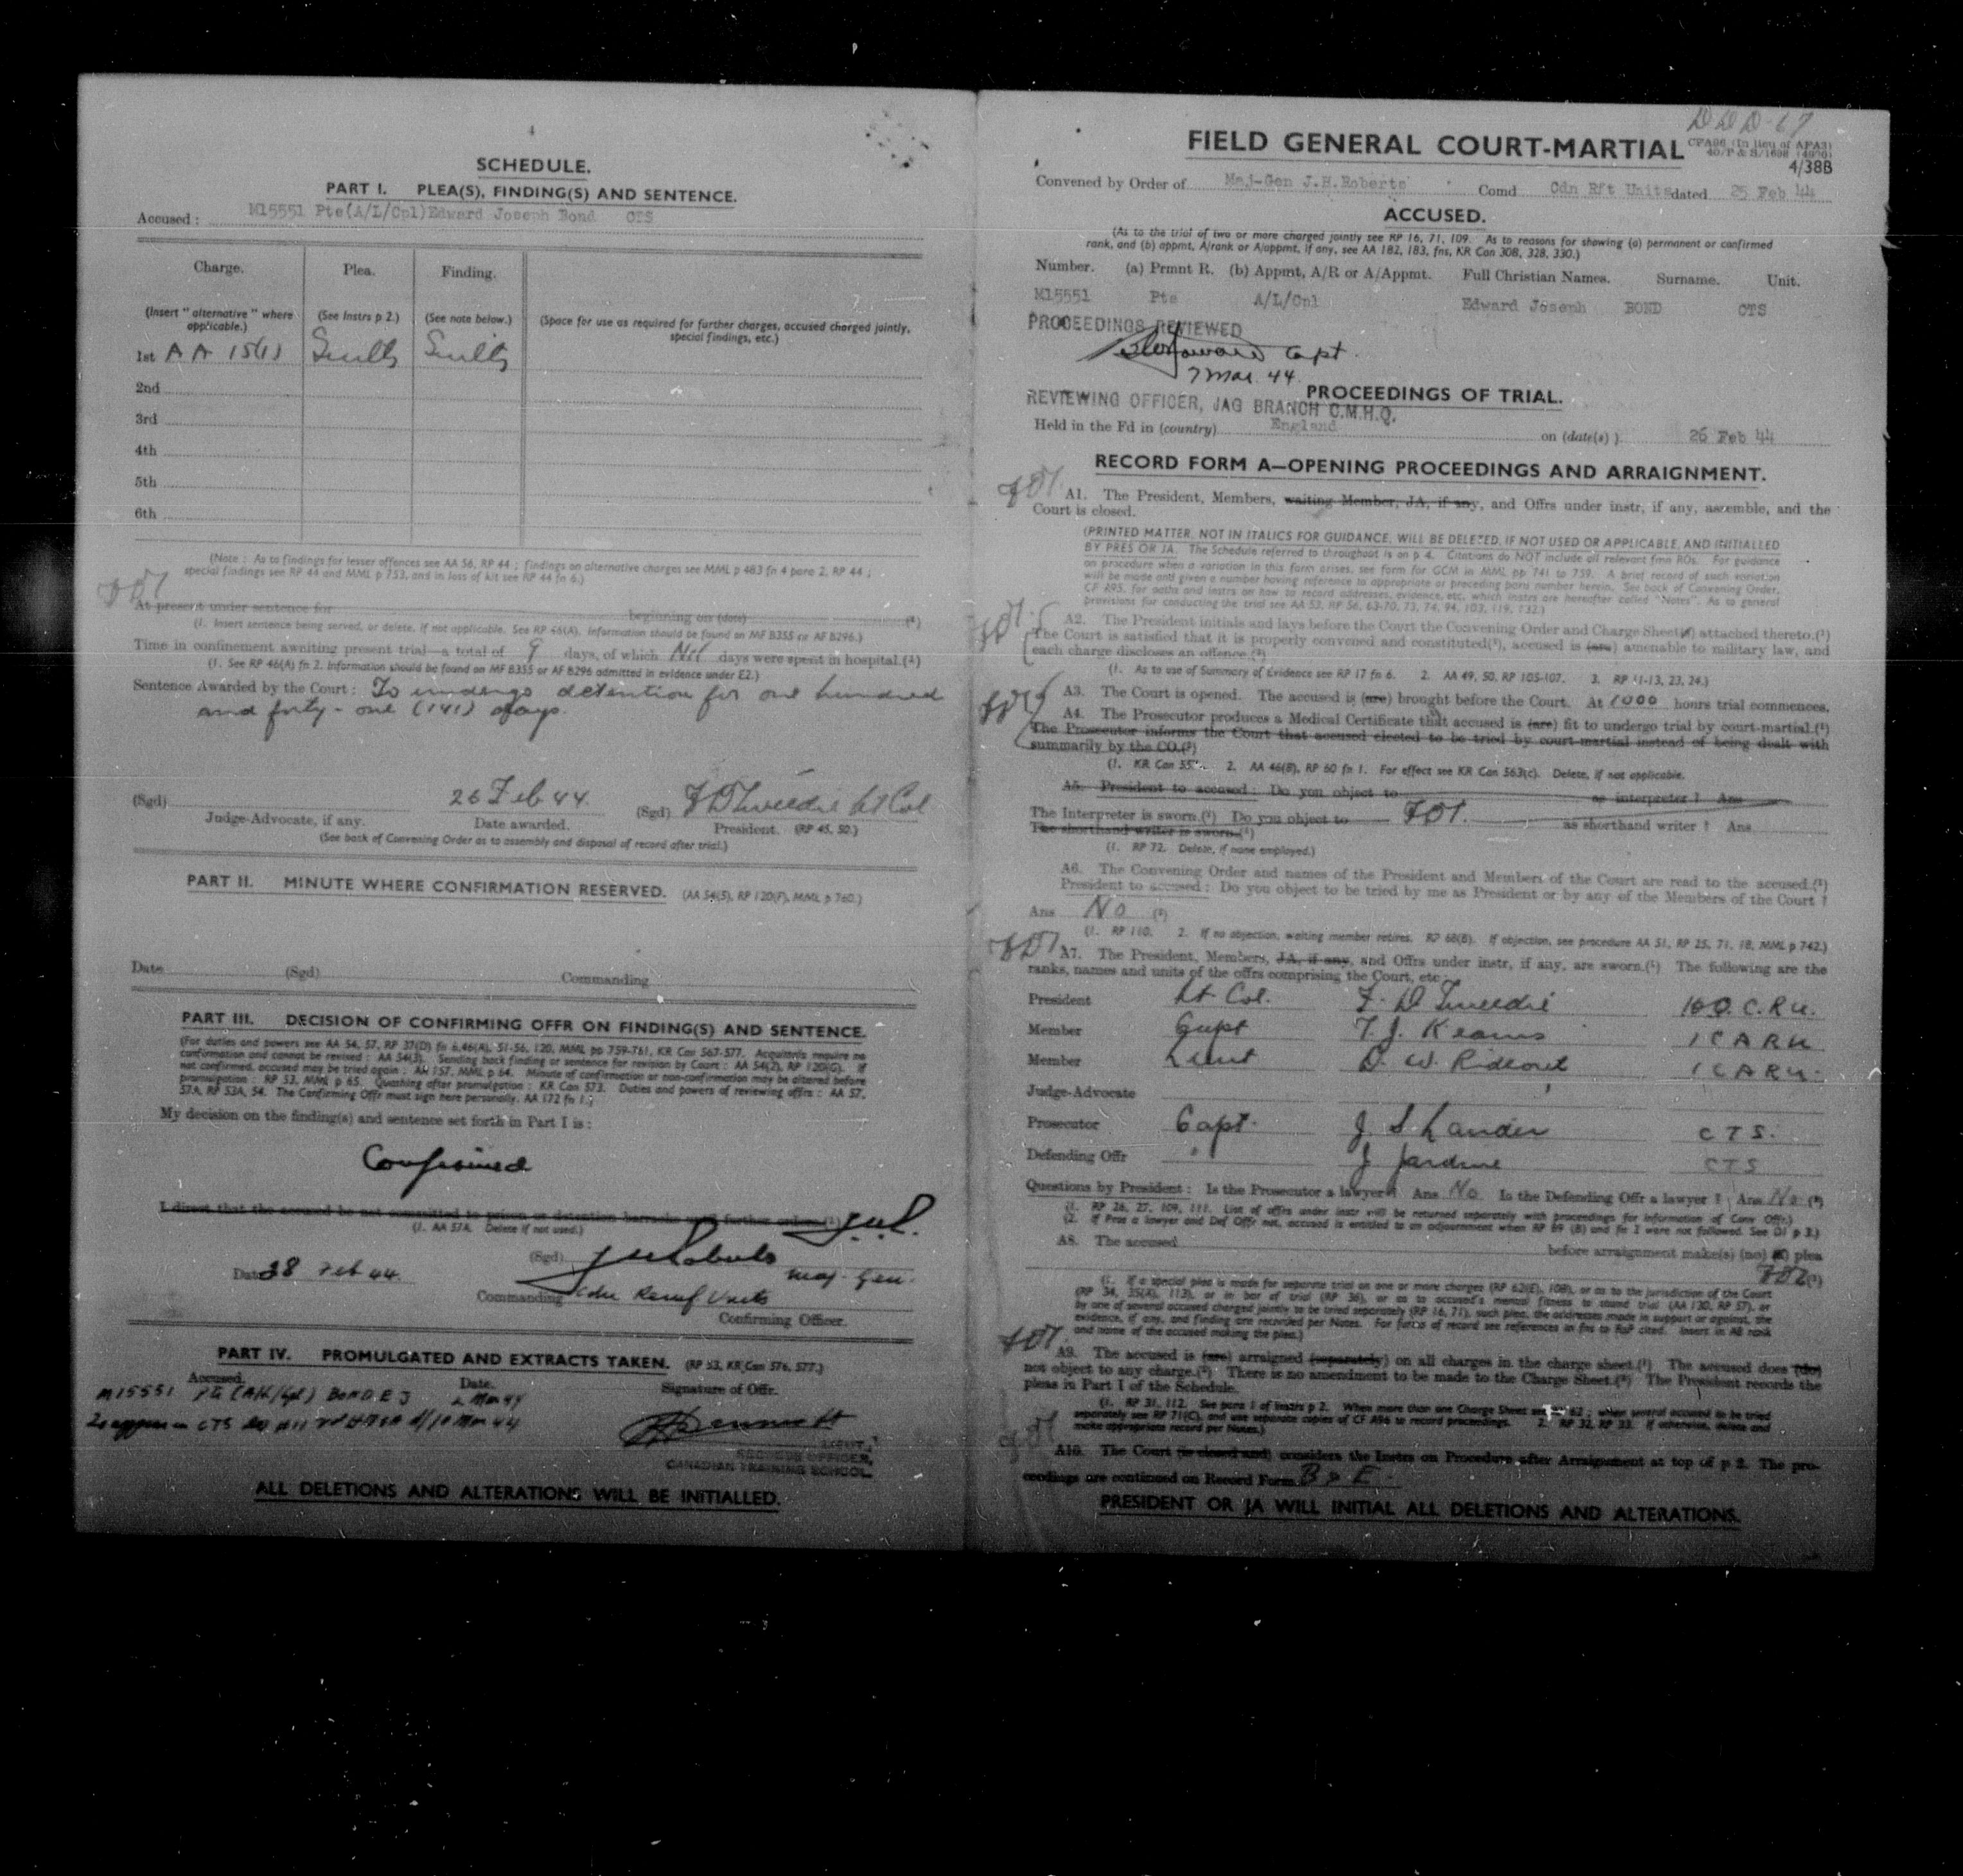 4
SCHEDULE.
PART I. PLEA(S), FINDING(S) AND SENTENCE.
Accused: M15551 Pte(A/L/Cpl)Edward Joseph Bond CTS
Charge. Plea. Finding.
(Insert "alternative" where applicable.) (See Instrs p 2.) (See note below.) (Space for use as required for further charges, accused charged jointly, special findings, etc.)
1st AA 15(1) Guilty Guilty
2nd
3rd
4th
5th
6th
(Note: As to findings for lesser offences see AA 56, RP 44; findings on alternative charges see MML p 483 fn 4 para 2, RP 44;
special findings see RP 44 and MML p 753, and in loss of kit see RP 44 fn 6.)
At present under sentence for beginning on (date) (¹)
(1. Insert sentence being served, or delete, if not applicable. See RP 46(A). Information should be found on MF B355 or AF B296.)
Time in confinement awaiting present trial—a total of 9 days, of which Nil days were spent in hospital.(¹)
(1. See RP 46(A) fn 2. Information should be found on MF B355 or AF B296 admitted in evidence under E2.)
Sentence Awarded by the Court: To undergo detention for one hundred
and forty-one (141) days.
(Sgd) 26 Feb 44. (Sgd) F D Tweedie Lt Col
Judge-Advocate, if any. Date awarded. President. (RP 45, 50.)
(See back of Convening Order as to assembly and disposal of record after trial.)
PART II. MINUTE WHERE CONFIRMATION RESERVED. (AA 54(5), RP 120(F), MML p 760.)
Date (Sgd) Commanding
PART III. DECISION OF CONFIRMING OFFR ON FINDING(S) AND SENTENCE.
(For duties and powers see AA 54, 57, RP 37(D) fn 6,46(A), 51-56, 120, MML pp 759-761, KR Can 567-577. Acquittals require no
confirmation and cannot be revised: AA 54(3). Sending back finding or sentence for revision by Court: AA 54(2), RP 120(G). If
not confirmed, accused may be tried again: AA 157, MML p 64. Minute of confirmation or non-confirmation may be altered before
promulgation: RP 53, MML p 65. Quashing after promulgation: KR Can 573. Duties and powers of reviewing offrs: AA 57,
57A, RP 53A, 54. The Confirming Offr must sign here personally. AA 172 fn 1.)
My decision on the finding(s) and sentence set forth in Part I is:
Confirmed
I direct that the accused be not committed to prison or detention barracks until further orders.(¹)
(1. AA 57A. Delete if not used.)
(Sgd) J H Roberts Maj-Gen.
Date 28 Feb 44.
Commanding Cdn Reinf Units
Confirming Officer.
PART IV. PROMULGATED AND EXTRACTS TAKEN. (RP 53, KR Can 576, 577.)
Accused. Date. Signature of Offr.
M15551 Pte (A/L/Cpl) BOND E J 2 Mar 44
CTS
LIEUT.,
RECORDS OFFICER,
CANADIAN TRAINING SCHOOL.
ALL DELETIONS AND ALTERATIONS WILL BE INITIALLED.
DDD-67
FIELD GENERAL COURT-MARTIAL
CFA96 (In lieu of AFA3)
40/P & S/1698 (4970)
4/38B
Convened by Order of Maj-Gen J.H.Roberts Comd Cdn Rft Units dated 25 Feb 44
ACCUSED.
(As to the trial of two or more charged jointly see RP 16, 71, 109. As to reasons for showing (a) permanent or confirmed
rank, and (b) appmt, A/rank or A/appmt, if any, see AA 182, 183, fns, KR Can 308, 328, 330.)
Number. (a) Prmnt R. (b) Appmt, A/R or A/Appmt. Full Christian Names. Surname. Unit.
M15551 Pte A/L/Cpl Edward Joseph BOND CTS
PROCEEDINGS REVIEWED
Capt.
7 Mar. 44.
PROCEEDINGS OF TRIAL.
REVIEWING OFFICER, JAG BRANCH C.M.H.Q.
Held in the Fd in (country) England on (date(s)) 26 Feb 44
RECORD FORM A—OPENING PROCEEDINGS AND ARRAIGNMENT.
A1. The President, Members, waiting Member, JA, if any, and Offrs under instr, if any, assemble, and the
Court is closed.
(PRINTED MATTER, NOT IN ITALICS FOR GUIDANCE, WILL BE DELETED, IF NOT USED OR APPLICABLE, AND INITIALLED
BY PRES OR JA. The Schedule referred to throughout is on p 4. Citations do NOT include all relevant fns ROs. For guidance
on procedure when a variation in this form arises, see form for GCM in MML pp 741 to 759. A brief record of such variation
will be made and given a number having reference to appropriate or preceding para number herein. See back of Convening Order,
CF A95, for oaths and instrs on how to record addresses, evidence, etc, which instrs are hereafter called "Notes". As to general
provisions for conducting the trial see AA 53, RP 56, 63-70, 73, 74, 94, 103, 119, 132.)
A2. The President initials and lays before the Court the Convening Order and Charge Sheet(s) attached thereto.(¹)
The Court is satisfied that it is properly convened and constituted(²), accused is (are) amenable to military law, and
each charge discloses an offence.(³)
(1. As to use of Summary of Evidence see RP 17 fn 6. 2. AA 49, 50, RP 105-107. 3. RP 11-13, 23, 24.)
A3. The Court is opened. The accused is (are) brought before the Court. At 1000 hours trial commences.
A4. The Prosecutor produces a Medical Certificate that accused is (are) fit to undergo trial by court-martial.(¹)
The Prosecutor informs the Court that accused elected to be tried by court-martial instead of being dealt with
summarily by the CO.(²)
(1. KR Can 55 2. AA 46(8), RP 60 fn 1. For effect see KR Can 563(c). Delete, if not applicable.
A5. President to accused: Do you object to as interpreter? Ans
The Interpreter is sworn.(¹) Do you object to FDT. as shorthand writer? Ans
The shorthand writer is sworn.(¹)
(1. RP 72. Delete, if none employed.)
A6. The Convening Order and names of the President and Members of the Court are read to the accused.(¹)
President to accused: Do you object to be tried by me as President or by any of the Members of the Court?
Ans No (²)
(1. RP 110. 2. If no objection, waiting member retires. RP 68(B). If objection, see procedure AA 51, RP 25, 71, 18, MML p 742.)
A7. The President, Members, JA, if any, and Offrs under instr, if any, are sworn.(¹) The following are the
ranks, names and units of the offrs comprising the Court, etc:
President Lt Col. F. D Tweedie C.R.U.
Member Capt T. J. Kearns 1 CARU
Member Lieut D. W. Rideout 1 CARU.
Judge-Advocate
Prosecutor Capt. J S Lander CTS.
Defending Offr " J Jardine CTS
Questions by President: Is the Prosecutor a lawyer? Ans No Is the Defending Offr a lawyer? Ans No (²)
(1. RP 26, 27, 109, 111. List of offrs under instr will be returned separately with proceedings for information of Conv Offr.)
(2. If Pros a lawyer and Def Offr not, accused is entitled to an adjournment when RP 89 (B) and fn 1 were not followed. See D1 p 3.)
A8. The accused before arraignment make(s) (no) (a) plea
FDT(¹)
(1. If a special plea is made for separate trial on one or more charges (RP 62(E), 108), or as to the jurisdiction of the Court
(RP 34, 35(A), 113), or in bar of trial (RP 36), or as to accused's mental fitness to stand trial (AA 130, RP 57), or
by one of several accused charged jointly to be tried separately (RP 16, 71), such plea, the addresses made in support or against, the
evidence, if any, and finding are recorded per Notes. For forms of record see references in fns to RsP cited. Insert in A8 rank
and name of the accused making the plea.)
A9. The accused is (are) arraigned (separately) on all charges in the charge sheet.(¹) The accused does (do)
not object to any charge.(²) There is no amendment to be made to the Charge Sheet.(²) The President records the
pleas in Part I of the Schedule.
(1. RP 31, 112. See para 1 of Instrs p 2. When more than one Charge Sheet see RP 62; when several accused to be tried
separately see RP 71(C), and use separate copies of CF A96 to record proceedings. 2. RP 32, RP 33. If otherwise, delete and
make appropriate record per Notes.)
A10. The Court (is closed and) considers the Instrs on Procedure after Arraignment at top of p 2. The pro-
ceedings are continued on Record Form B & E.
PRESIDENT OR JA WILL INITIAL ALL DELETIONS AND ALTERATIONS.